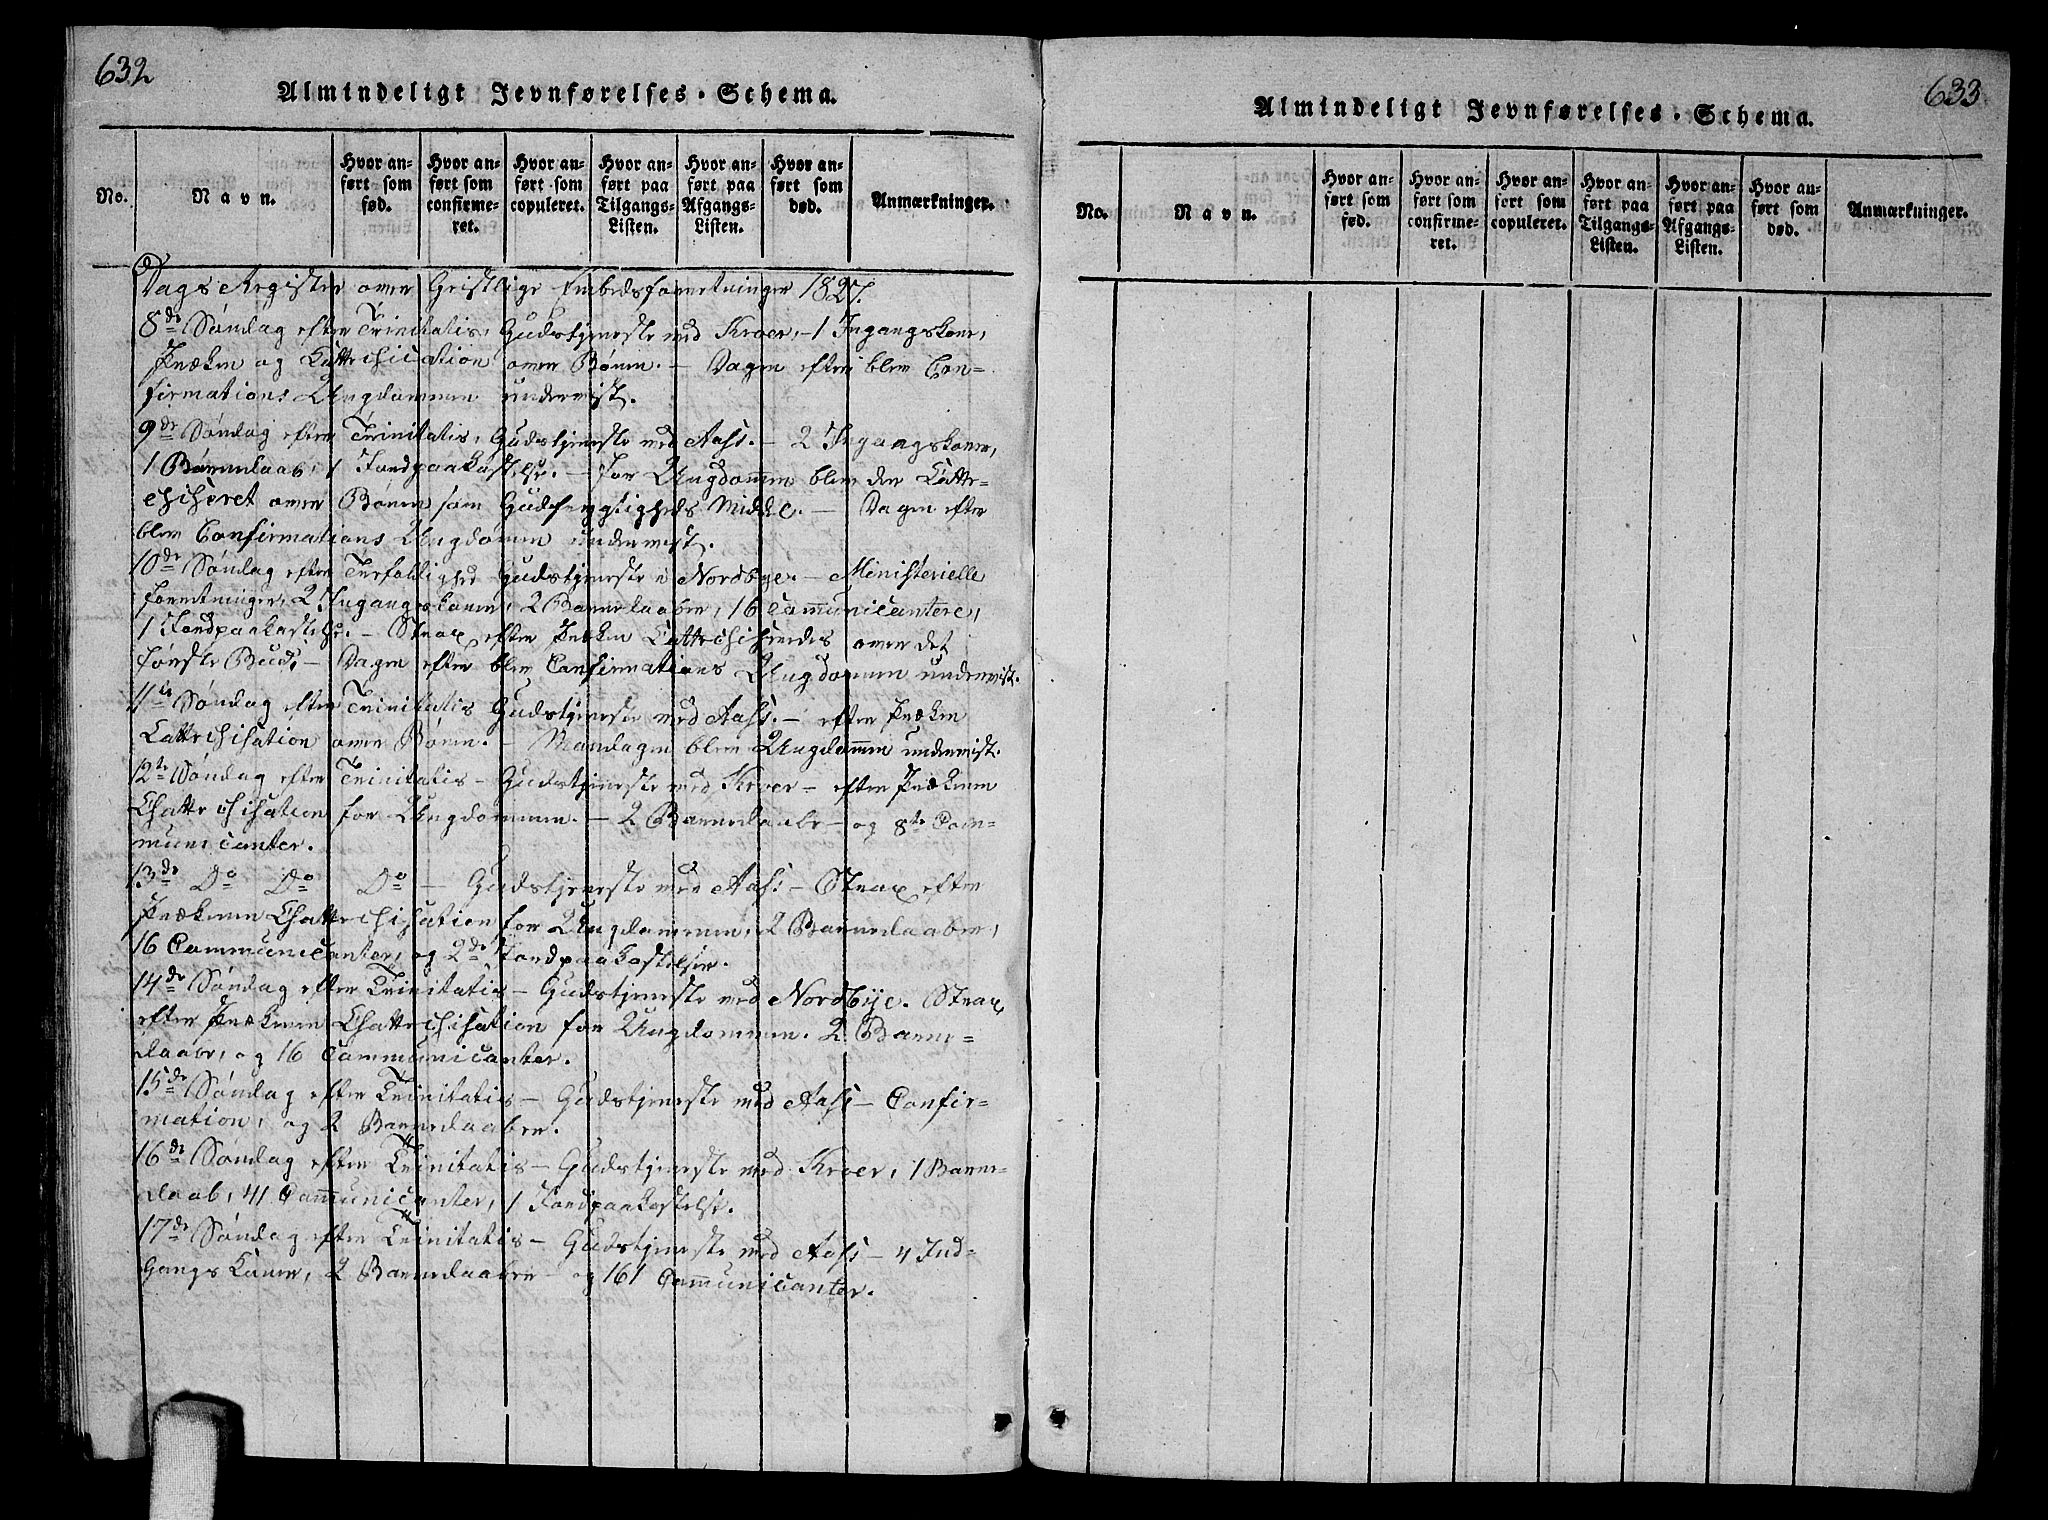 632
Almindeligt Jevnførelses-Schema.
No.
Navn.
Hvor anført som fød.
Hvor anført som confirmeret.
Hvor anført som copuleret.
Hvor anført paa Tilgangs-Listen.
Hvor anført paa Afgangs-Listen.
Hvor anført som død.
Anmærkninger.
Dags Register over Geistlige Embedsforretninger 1827.
8de Søndag efter Trinitatis, Gudstjeneste ved Kroer, 1 Ingangskone,
Præken og Cattechication over Bønen. - Dagen efter blev Con-
firmations Ungdommen undervist.
9de Søndag efter Trinitatis, Gudstjeneste ved Aahs. - 2 Ingangskoner,
1 Barnedaab, 1 Jordpaakastelse. - for Ungdommen blev der Catte-
chiseret over Bønen som Gudfrygtigheds Middel. - Dagen efter
blev Confirmations Ungdommen undervist.
10de Søndag efter Trefoldighed Gudstjeneste i Nordbye. - Ministerielle
forretninger, 2 Ingangskoner, 2 Barnedaaber, 16 Communicantere,
1 Jordpaakastelse. - Strax efter Præken Cattechiseredes over det
første Bud. - Dagen efter blev Confirmations Ungdommen undervist.
11te Søndag efter Trinitatis Gudstjeneste ved Aahs. - efter Præken
Cattechisation over Bønen. - Mandagen blev Ungdommen undervist.
12te Søndag efter Trinitatis - Gudstjeneste ved Kroer - efter Prækenen
Chattechisation for Ungdommen. - 2 Barnedaabe - og 8te Com-
municanter.
13de Do Do Do - Gudstjeneste ved Aahs - Strax efter
Prækenen Chattechisation for Ungdommen, 2 Barnedaaber,
16 Communicanter, og 2de Jordpaakastelser.
14de Søndag efter Trinitatis - Gudstjeneste ved Nordbye. Strax
efter Prækenen Chattechisation for Ungdommen. 2 Barne-
daabe, og 16 Communicanter.
15de Søndag efter Trinitatis - Gudstjeneste ved Aahs - Confir-
mation, og 2 Barnedaaber.
16de Søndag efter Trinitatis - Gudstjeneste ved Kroer, 1 Barne-
daab, 41 Communicanter, 1 Jordpaakastelse.
17de Søndag efter Trinitatis - Gudstjeneste ved Aahs - 4 Ind-
Gangs Koner, 2 Barnedaaber - og 161 Communicanter.
633
Almindeligt Jevnførelses-Schema.
No.
Navn.
Hvor anført som fød.
Hvor anført som confirmeret.
Hvor anført som copuleret.
Hvor anført paa Tilgangs-Listen.
Hvor anført paa Afgangs-Listen.
Hvor anført som død.
Anmærkninger.